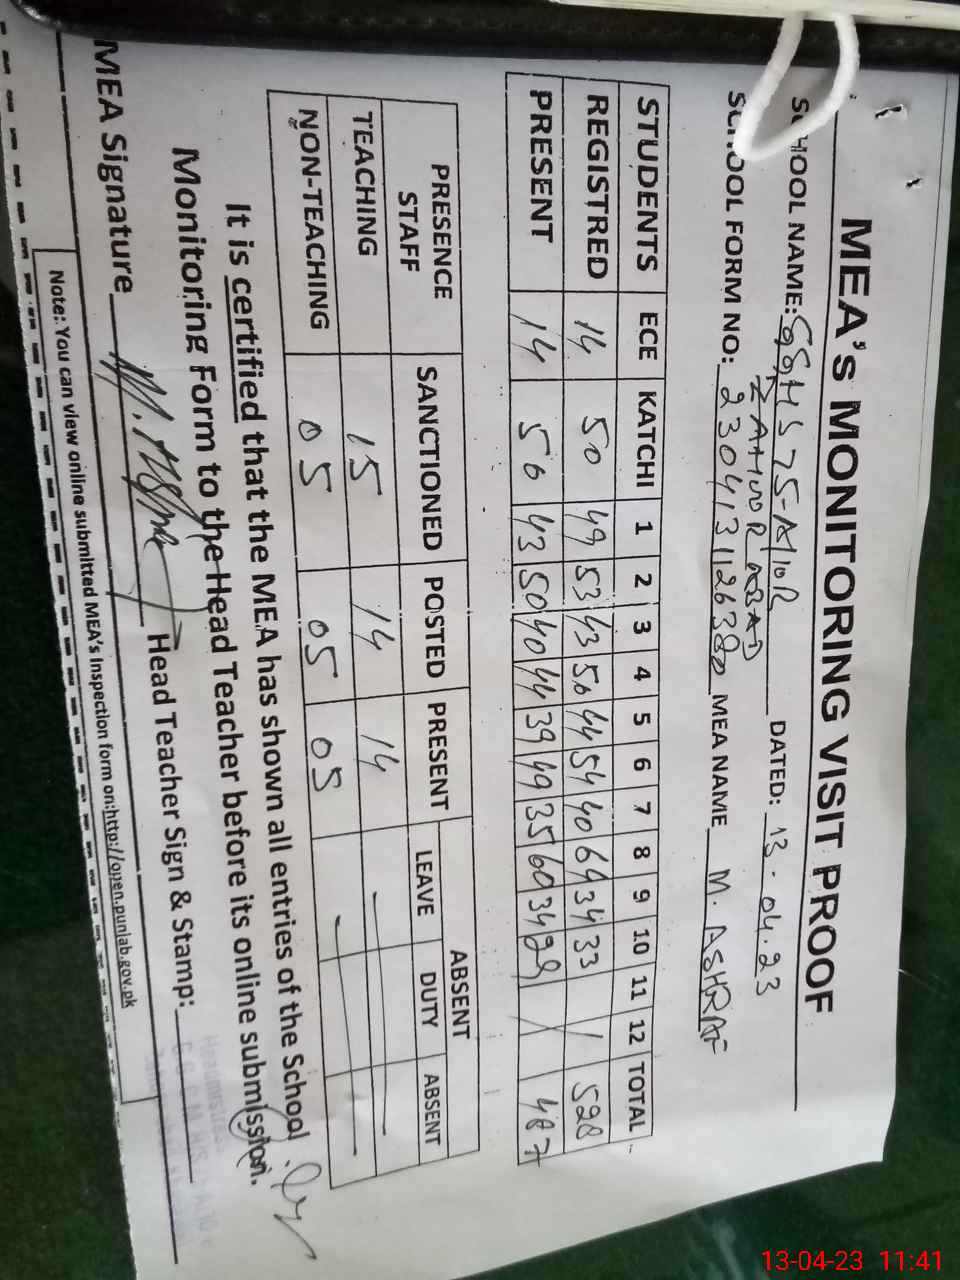 MEA's MONITORING VISIT PROOF
SCHOOL NAME: GGHS 75-A/10R DATED: 13.04.23
ZAHOOR ABAD
SCHOOL FORM NO: 2304131126380 MEA NAME M. ASHRAF
STUDENTS ECE KATCHI 1 2 3 4 5 6 7 8 9 10 11 12 TOTAL
REGISTRED 14 50 49 53 43 50 44 54 40 64 34 33 / 528
PRESENT 14 50 43 50 40 44 39 49 35 60 34 29 / 487
PRESENCE STAFF SANCTIONED POSTED PRESENT ABSENT
LEAVE DUTY ABSENT
TEACHING 15 14 14
NON-TEACHING 05 05 05
It is certified that the MEA has shown all entries of the School
Monitoring Form to the Head Teacher before its online submission.
MEA Signature Head Teacher Sign & Stamp:
Note: You can view online submitted MEA's Inspection form on:http://open.punjab.gov.pk
13-04-23 11:41